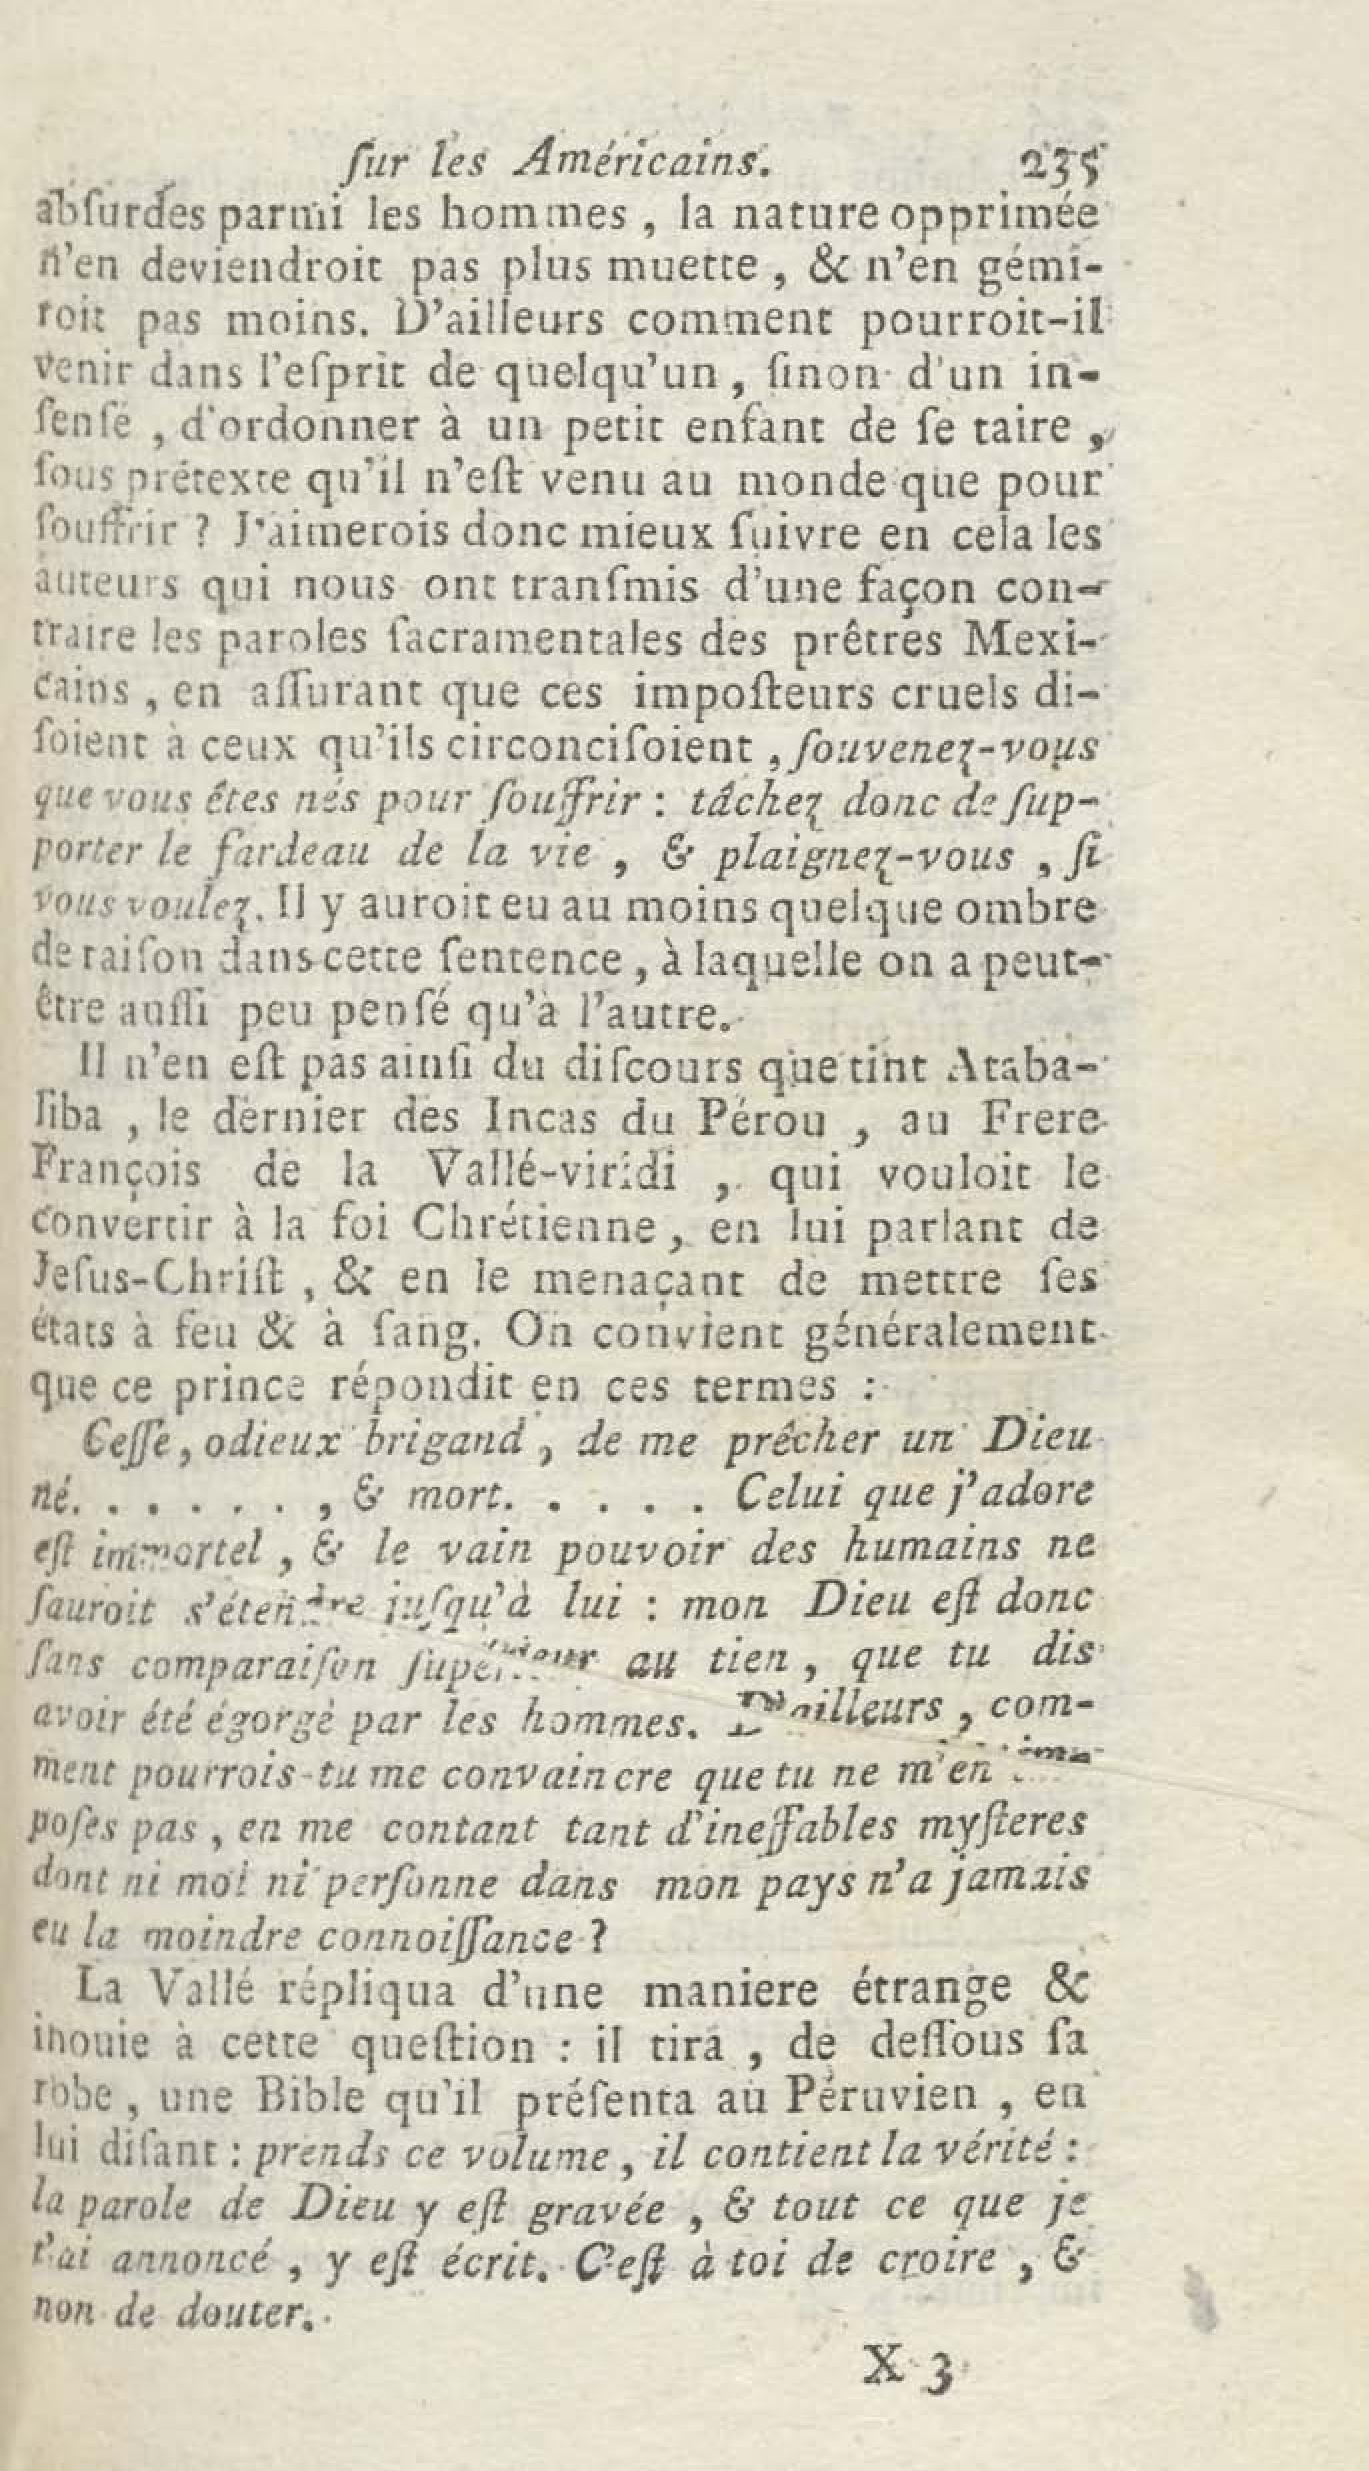 ſur les Américains. 235
abſurdes parmi les hommes, la nature opprimée
n'en deviendroit pas plus muette, & n'en gémi-
roit pas moins. D'ailleurs comment pourroit-il
venir dans l'eſprit de quelqu'un, ſinon d'un in-
ſenſé, d'ordonner à un petit enfant de ſe taire,
ſous prétexte qu'il n'eſt venu au monde que pour
ſouffrir ? J'aimerois donc mieux ſuivre en cela les
auteurs qui nous ont tranſmis d'une façon con-
traire les paroles ſacramentales des prêtres Mexi-
cains, en aſſurant que ces impoſteurs cruels di-
ſoient à ceux qu'ils circonciſoient, ſouvenez-vous
que vous êtes nés pour ſouffrir : tâchez donc de ſup-
porter le fardeau de la vie, & plaignez-vous, ſi
vous voulez. Il y auroit eu au moins quelque ombre
de raiſon dans cette ſentence, à laquelle on a peut-
être auſſi peu penſé qu'à l'autre.
Il n'en eſt pas ainſi du diſcours que tint Ataba-
liba, le dernier des Incas du Pérou, au Frere
François de la Vallé-viridi, qui vouloit le
convertir à la foi Chrétienne, en lui parlant de
Jeſus-Chriſt, & en le menaçant de mettre ſes
états à feu & à ſang. On convient généralement
que ce prince répondit en ces termes :
Ceſſe, odieux brigand, de me prêcher un Dieu
né. . . . . . ., & mort. . . . . Celui que j'adore
eſt immortel, & le vain pouvoir des humains ne
ſauroit s'étendre juſqu'à lui : mon Dieu eſt donc
ſans comparaiſon ſupérieur au tien, que tu dis
avoir été égorgé par les hommes. D'ailleurs, com-
ment pourrois-tu me convaincre que tu ne m'en im-
poſes pas, en me contant tant d'ineffables myſteres
dont ni moi ni perſonne dans mon pays n'a jamais
eu la moindre connoiſſance ?
La Vallé répliqua d'une maniere étrange &
inouie à cette queſtion : il tira, de deſſous ſa
robe, une Bible qu'il préſenta au Péruvien, en
lui diſant : prends ce volume, il contient la vérité :
la parole de Dieu y eſt gravée, & tout ce que je
t'ai annoncé, y eſt écrit. C'eſt à toi de croire, &
non de douter.
X 3